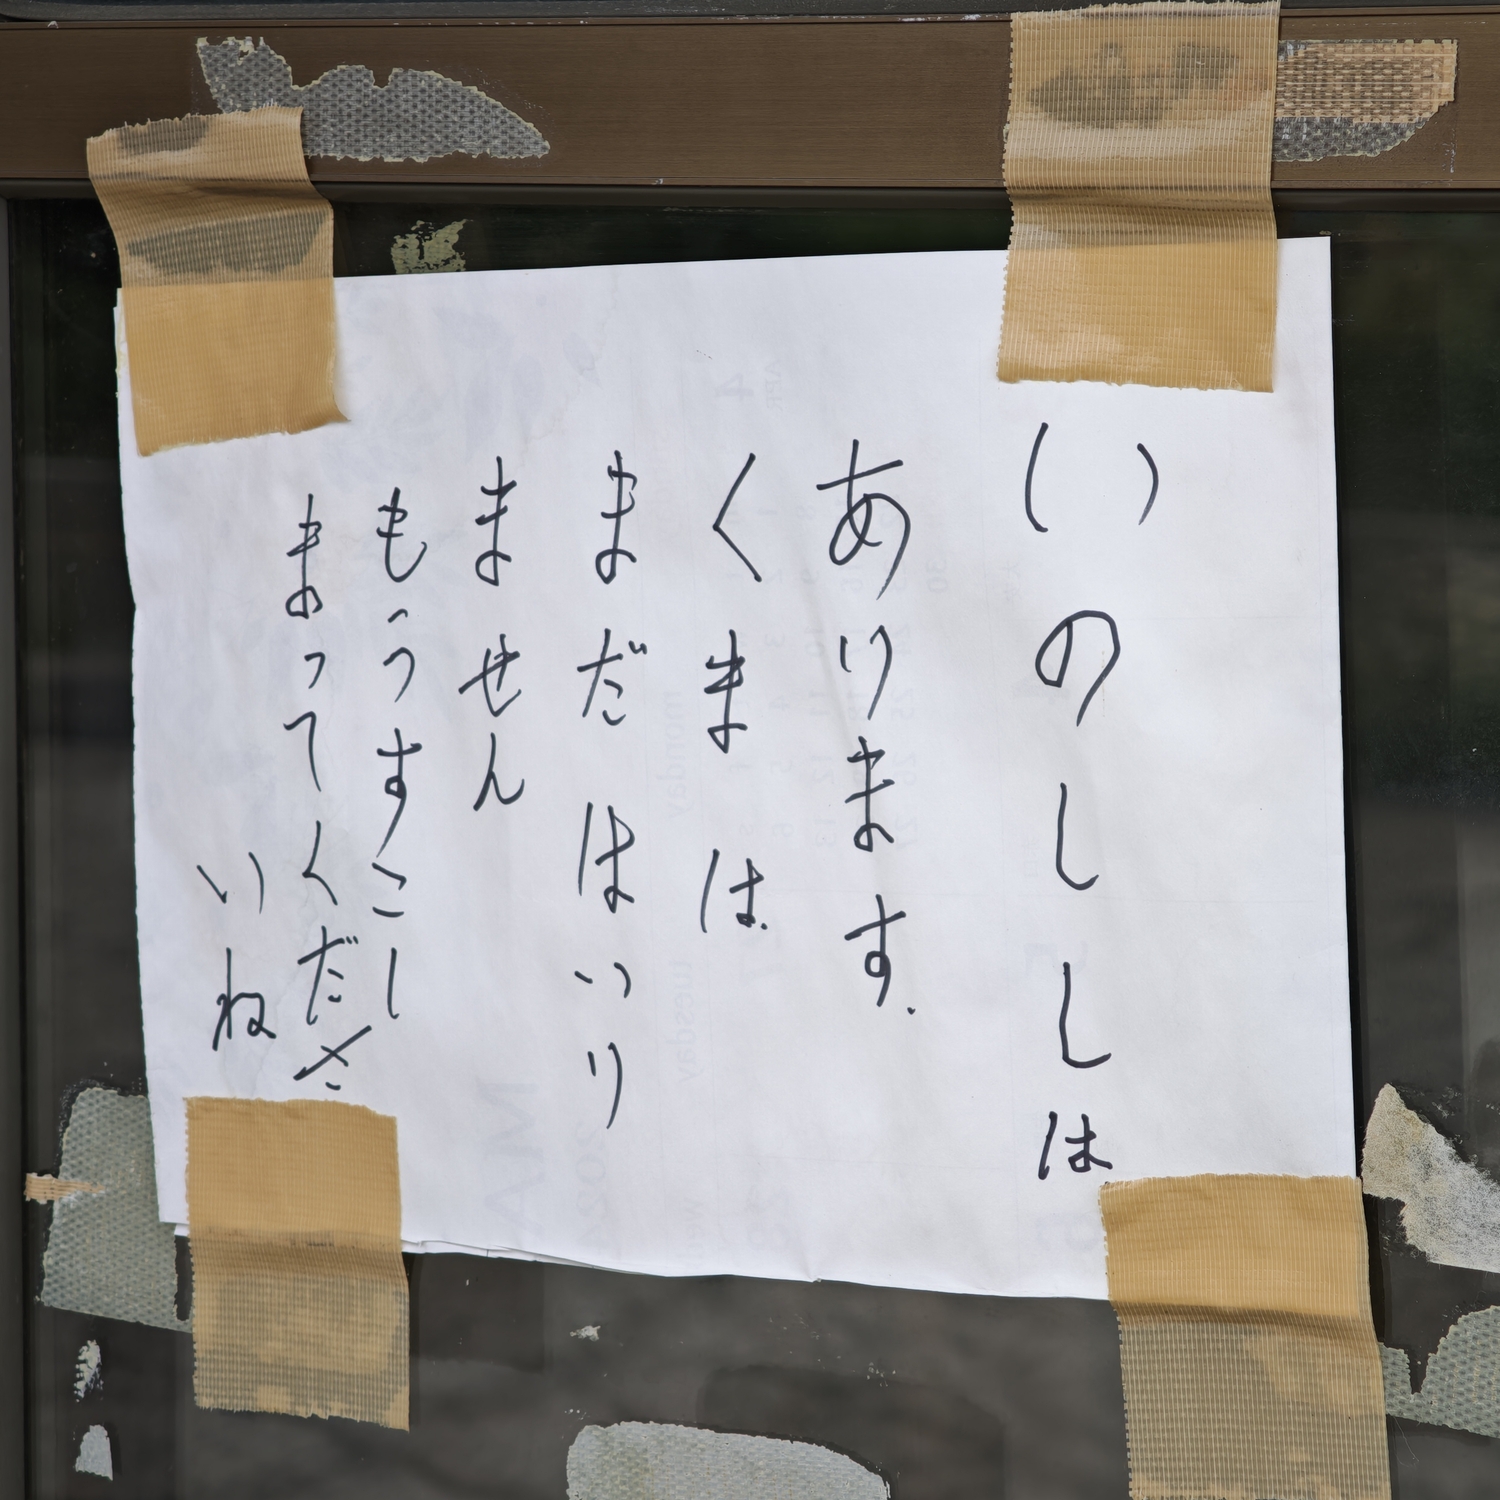 いのししは
あります.
くまは
まだはいり
ません
もうすこし
まってくださ
いね